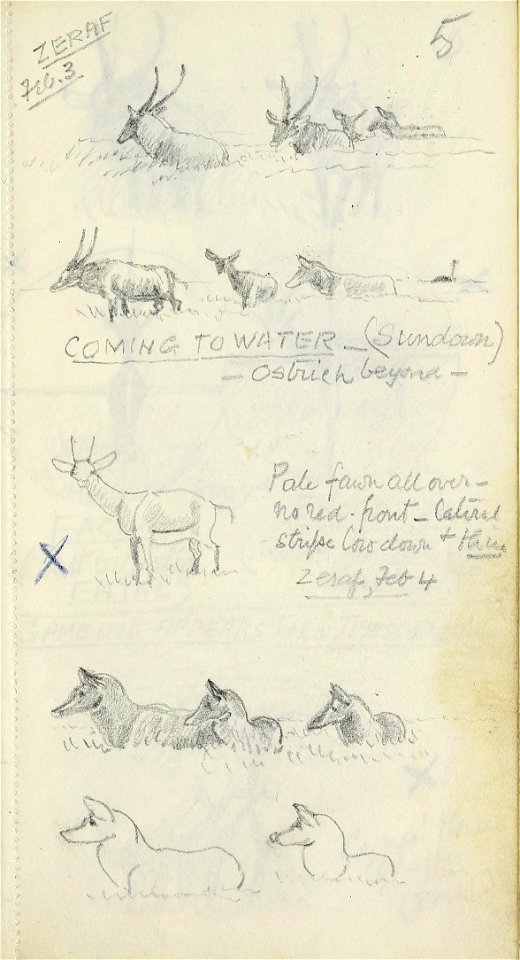 ZERAF
Feb. 3
5
COMING TO WATER – (Sundown)
– Ostrich beyond –
Pale fawn all over –
no red-front – lateral
stripe low down + thin
Zeraf, Feb 4